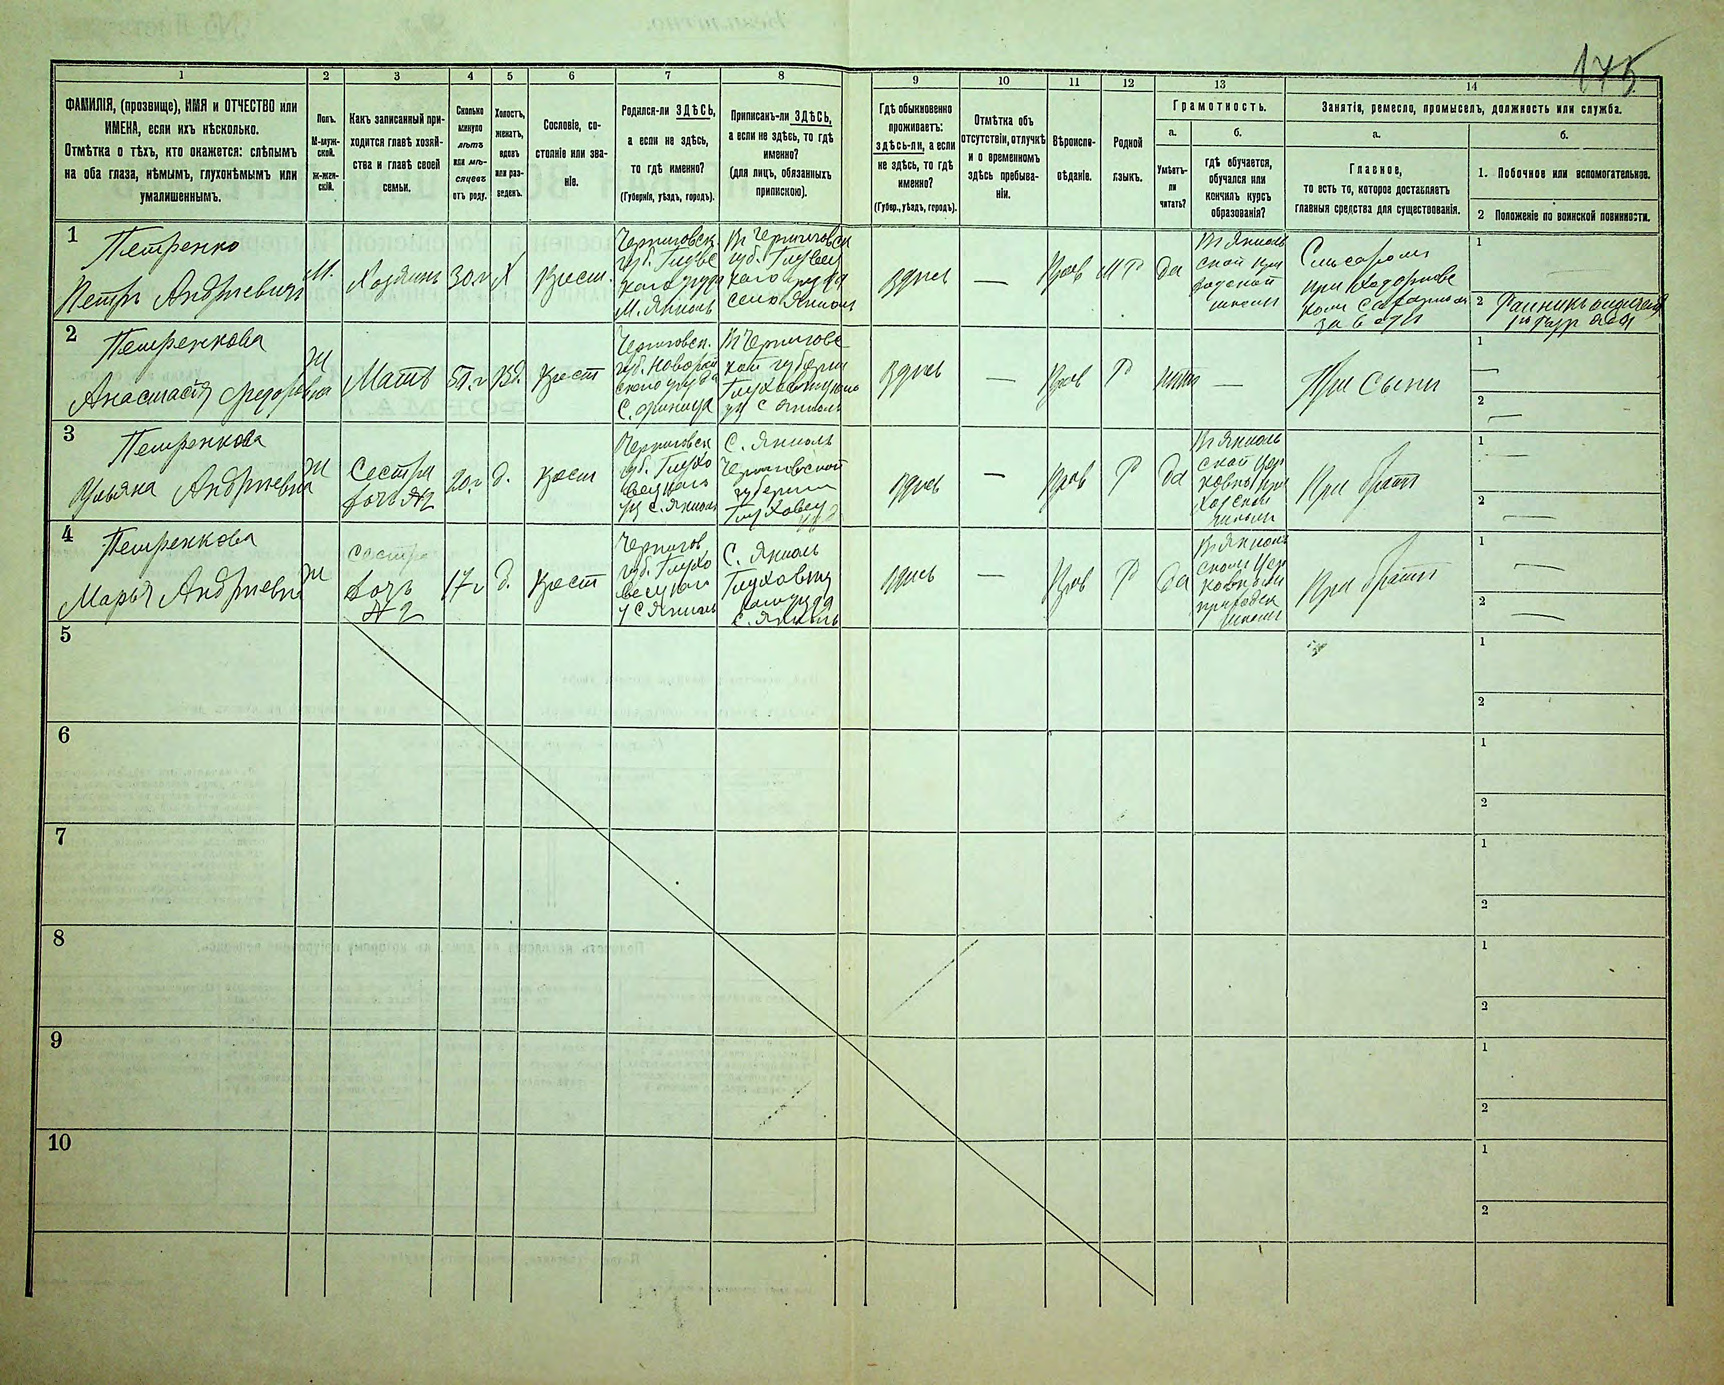 175
1 2 3 4 5 6 7 8 9 10 11 12 13 14
ФАМИЛІЯ, (прозвище), ИМЯ и ОТЧЕСТВО или
ИМЕНА, если ихъ нѣсколько.
Отмѣтка о тѣхъ, кто окажется: слѣпымъ
на оба глаза, нѣмымъ, глухонѣмымъ или
умалишеннымъ.
Полъ.
М-муж-
ской.
ж-жен-
скій.
Какъ записанный при-
ходится главѣ хозяй-
ства и главѣ своей
семьи.
Сколько
минуло
лѣтъ
или мѣ-
сяцевъ
отъ роду.
Холостъ,
женатъ,
вдовъ
или раз-
веденъ.
Сословіе, со-
стояніе или зва-
ніе.
Родился-ли ЗДѢСЬ,
а если не здѣсь,
то гдѣ именно?
(Губернія, уѣздъ, городъ).
Приписанъ-ли ЗДѢСЬ,
а если не здѣсь, то гдѣ
именно?
(для лицъ, обязанныхъ
припискою).
Гдѣ обыкновенно
проживаетъ:
здѣсь-ли, а если
не здѣсь, то гдѣ
именно?
(Губер., уѣздъ, городъ).
Отмѣтка объ
отсутствіи, отлучкѣ
и о временномъ
здѣсь пребыва-
ніи.
Вѣроиспо-
вѣданіе.
Родной
языкъ.
Грамотность.
а.
Умѣетъ-
ли
читать?
б.
гдѣ обучается,
обучался или
кончилъ курсъ
образованія?
Занятіе, ремесло, промыселъ, должность или служба.
а.
Главное,
то есть то, которое доставляетъ
главныя средства для существованія.
б.
1. Побочное или вспомогательное.
2 Положеніе по воинской повинности.
1
Петренко
Петръ Андреевичъ
М.
Хозяинъ
30 г
Х
Крест.
Черниговск.
губ. Глухов
М. Ямполь
Въ Черниговск
губ.
село Ямполь
здѣсь
—
Прав
МР
да
Въ Ямполь
ской
школы
Слесаромъ
при
1
—
2
2
Петренкова
Анастасія Федоровна
Ж
Мать
вд.
Крест
Черниговск.
губ. Новгород
скаго уѣзда
Въ Черниговс
кой губерніи
Глуховскаго
уѣ с Ямполь
здѣсь
—
Прав
Р
нѣтъ
—
При сынѣ
1
—
2
—
3
Петренкова
Ульяна Андреевна
Ж
Сестра
дочь №2
20 г
д.
Крест
Черниговск
губ. Глухо
вецкаго
уѣ С. Ямполь
С. Ямполь
Черниговской
губерніи
Глуховец
здѣсь
—
Прав
Р
да
Въ Ямполь
ской цер
ковно при
ходской
школы
При братѣ
1
—
2
—
4
Петренкова
Марья Андреевна
Ж
сестра
дочь
№ 2
17 г
д.
Крест
Чернигов
губ. Глухо
вецкаго
у С Ямполь
С. Ямполь
Глуховец
С. Ямполь
здѣсь
—
Прав
Р
да
Въ Ямполь
ской цер
ковной
приходск
школы
При братѣ
1
—
2
—
5
1
2
6
1
2
7
1
2
8
1
2
9
1
2
10
1
2